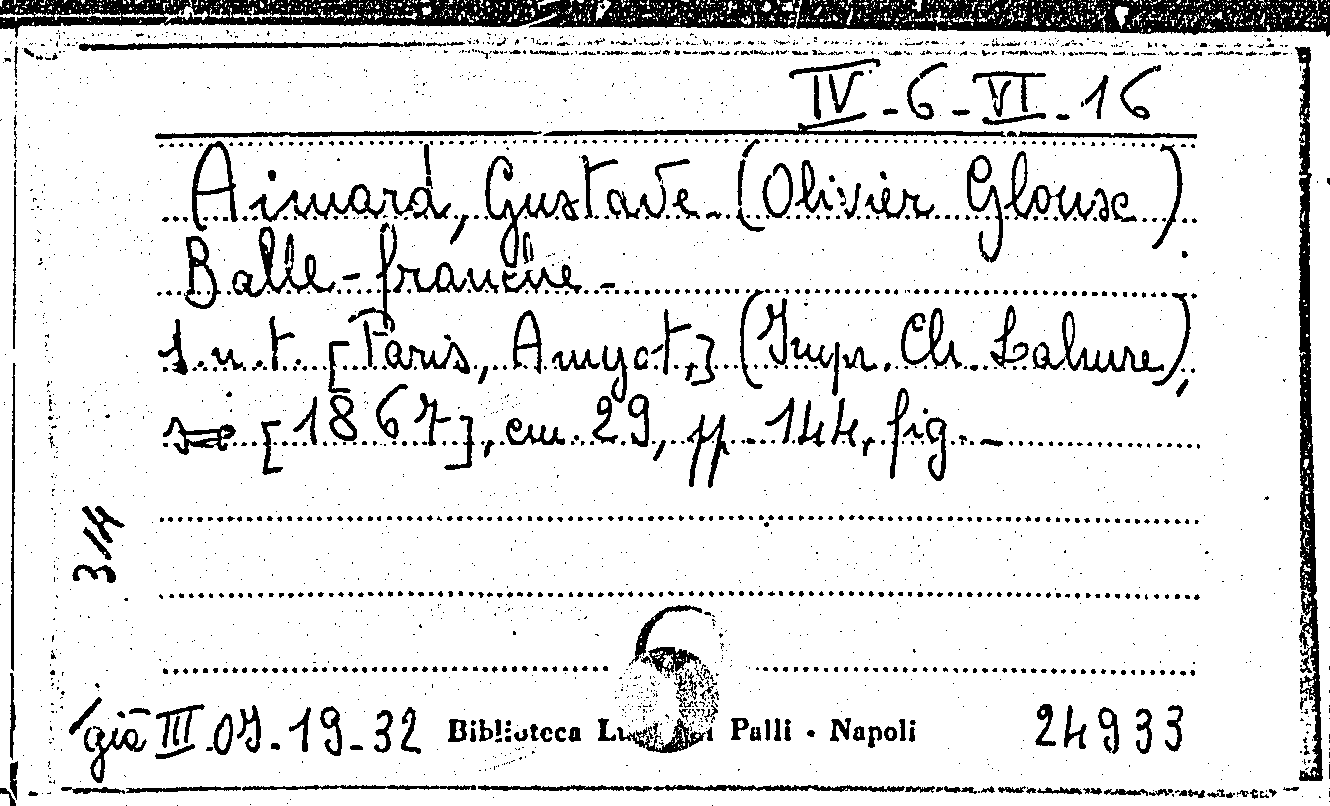 IV-6-VI-16
Aimard, Gustave. (Olivier Glouxe).
Balle-franche-
s.n.t. [Paris, Amyot,] (Impr. Ch. Lahure),
[1867], cm. 29, pp. 144, fig.-
314
già III.07-19-32 Biblioteca Palli - Napoli 24933